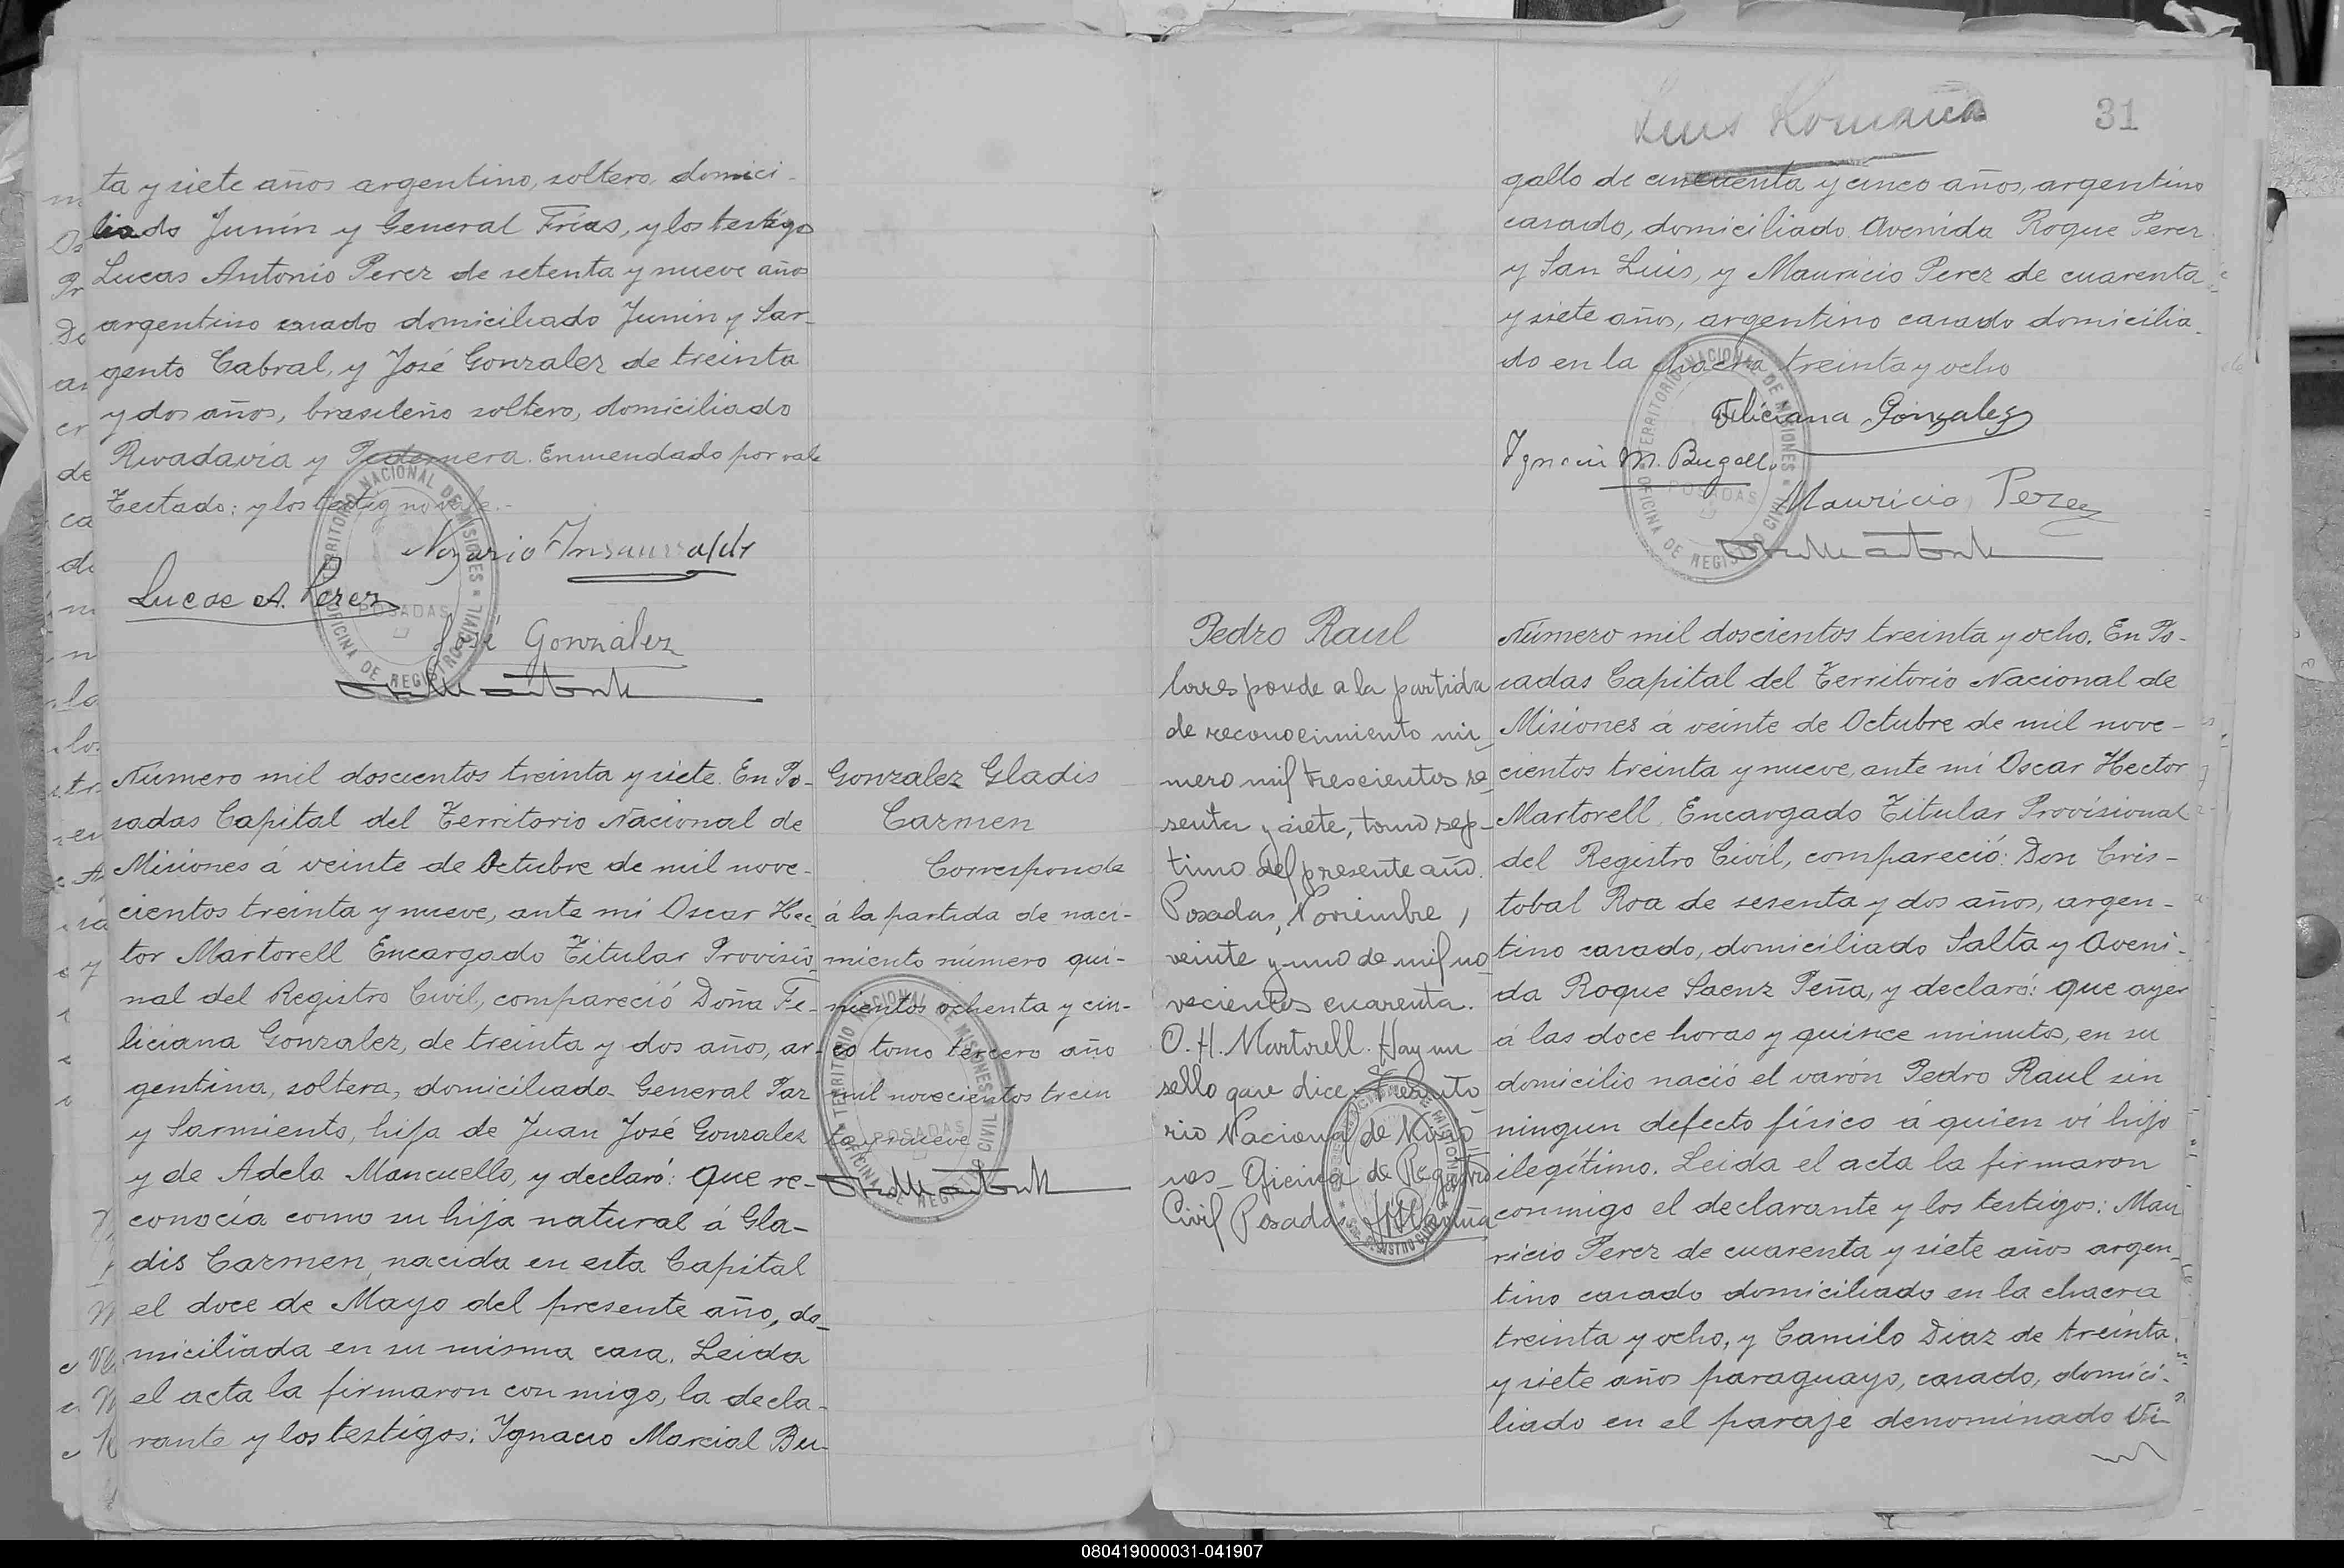 ta y siete años argentino, soltero, domici-
liado Junín y General Frías, y los testigo
Lucas Antonio Perez de setenta y nueve años
argentino casado domiciliado Junín y Sar-
gento Cabral, y José Gonzalez de treinta
y dos años, brasileño soltero, domiciliado
Rivadavia y Pedernera. Enmendado por vale
Testado: y los testig no vale.-
Nazario Insaurralde
Lucas A. Perez
José González
TERRITORIO NACIONAL DE MISIONES
POSADAS
OFICINA DE REGISTRO CIVIL
Número mil doscientos treinta y siete. En Po-
sadas Capital del Territorio Nacional de
Misiones á veinte de Octubre de mil nove-
cientos treinta y nueve, ante mi Oscar Hec
tor Martorell Encargado Titular Provisio
nal del Registro Civil, compareció Doña Fe-
liciana Gonzalez, de treinta y dos años, ar-
gentina, soltera, domiciliada General Paz
y Sarmiento, hija de Juan José Gonzalez
y de Adela Mancuello, y declaró: que re-
conocía como su hija natural á Gla-
dis Carmen, nacida en esta Capital
el doce de Mayo del presente año, do-
miciliada en su misma casa. Leida
el acta la firmaron con migo, la decla-
rante y los testigos: Ygnacio Marcial Bu-
Gonzalez Gladis
Carmen
Corresponde
á la partida de naci-
miento número qui-
nientos ochenta y cin-
co tomo tercero año
mil novecientos trein
ta y nueve
TERRITORIO NACIONAL DE MISIONES
POSADAS
OFICINA DE REGISTRO CIVIL
Luis Romaña
31
gallo de cincuenta y cinco años, argentino
casado, domiciliado Avenida Roque Perez
y San Luis, y Mauricio Perez de cuarenta
y siete años, argentino casado domicilia-
do en la chacra treinta y ocho
Feliciana Gonzalez
Ygnacio M. Bugallo
Mauricio Perez
TERRITORIO NACIONAL DE MISIONES
POSADAS
OFICINA DE REGISTRO CIVIL
Pedro Raul
Corresponde a la partida
de reconocimiento nú-
mero mil trescientos se
senta y siete, tomo sép-
timo del presente año.
Posadas, Noviembre,
veinte y uno de mil no
vecientos cuarenta.
O. H. Martorell. Hay un
sello que dice: Territo
rio Nacional de Misio
nes - Oficina de Registro
Civil Posadas
Número mil doscientos treinta y ocho. En Po-
sadas Capital del Territorio Nacional de
Misiones á veinte de Octubre de mil nove-
cientos treinta y nueve, ante mi Oscar Hector
Martorell, Encargado Titular Provisional
del Registro Civil, compareció: Don Cris-
tobal Roa de sesenta y dos años, argen-
tino casado, domiciliado Salta y Aveni-
da Roque Saenz Peña, y declaró: que ayer
á las doce horas y quince minutos, en su
domicilio nació el varón Pedro Raul sin
ningun defecto físico á quien ví hijo
ilegítimo. Leida el acta la firmaron
conmigo el declarante y los testigos: Mau
ricio Perez de cuarenta y siete años argen-
tino casado domiciliado en la chacra
treinta y ocho, y Camilo Diaz de treinta
y siete años paraguayo, casado, domici-
liado en el paraje denominado Vi-
080419000031-041907